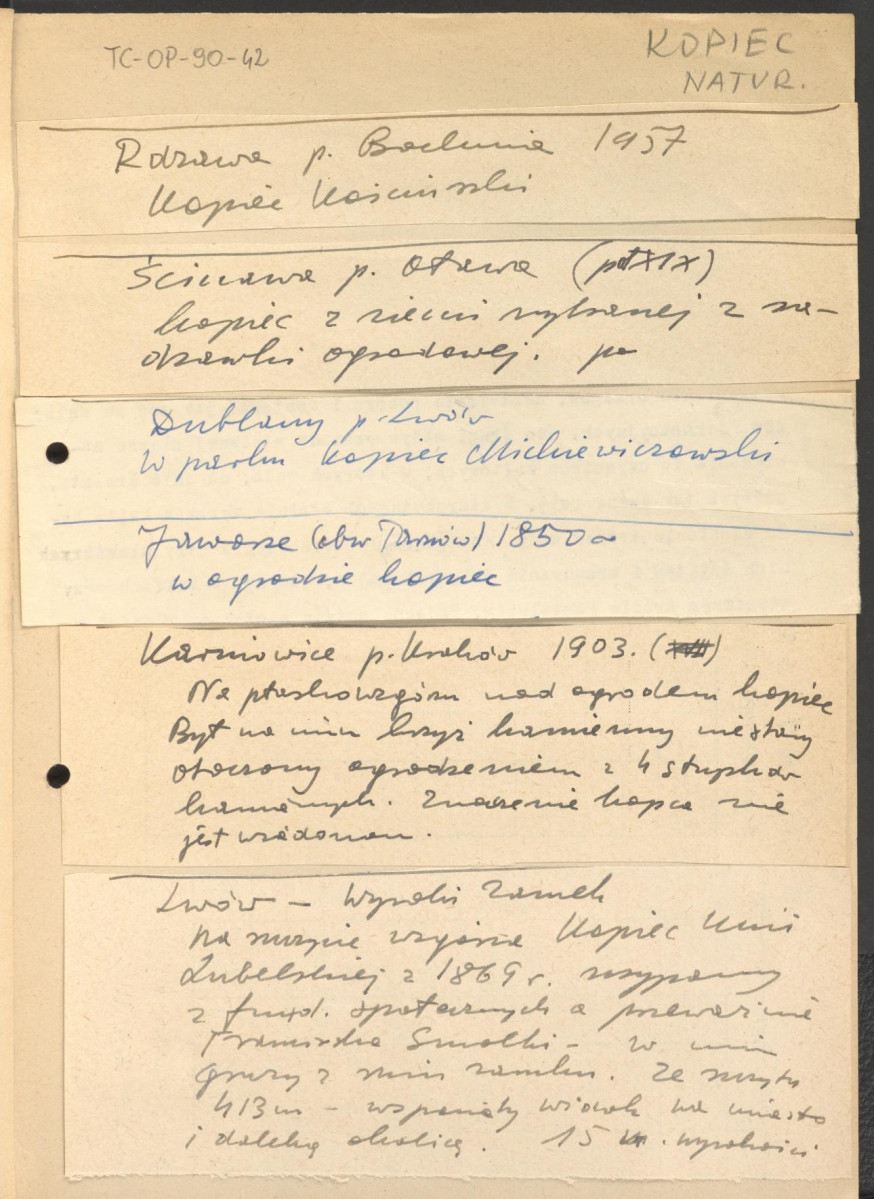 TC-OP-90-42
KOPIEC
NATUR.
Rdzawa p. Bochnia 1957
Kopiec Kościuszki
Ścinawa p. Oława (poł XIX)
kopiec z ziemi wybranej z sa-
dzawki ogrodowej. po
Dublany p. Lwów
W parku Kopiec Mickiewiczowski
Jaworze (obw Tarnów) 1850
w ogrodzie kopiec
Karniowice p. Kraków 1903.
Na ptaskowzgórzu nad ogrodem kopiec
Był na nim krzyż kamienny niestary
otoczony ogrodzeniem z 4 słupków
kamiennych. Znaczenie kopca nie
jest wiadomom.
Lwów – Wysoki Zamek
Na szczycie wzgórza Kopiec Unii
Lubelskiej z 1869 r. usypany
z fund. społecznych a przeważnie
Franciszka Smolki – w nim
gruzy z ruin zamku. Ze szczytu
413 m – wspaniały widok na miasto
i daleką okolicę. 15 m. wysokości